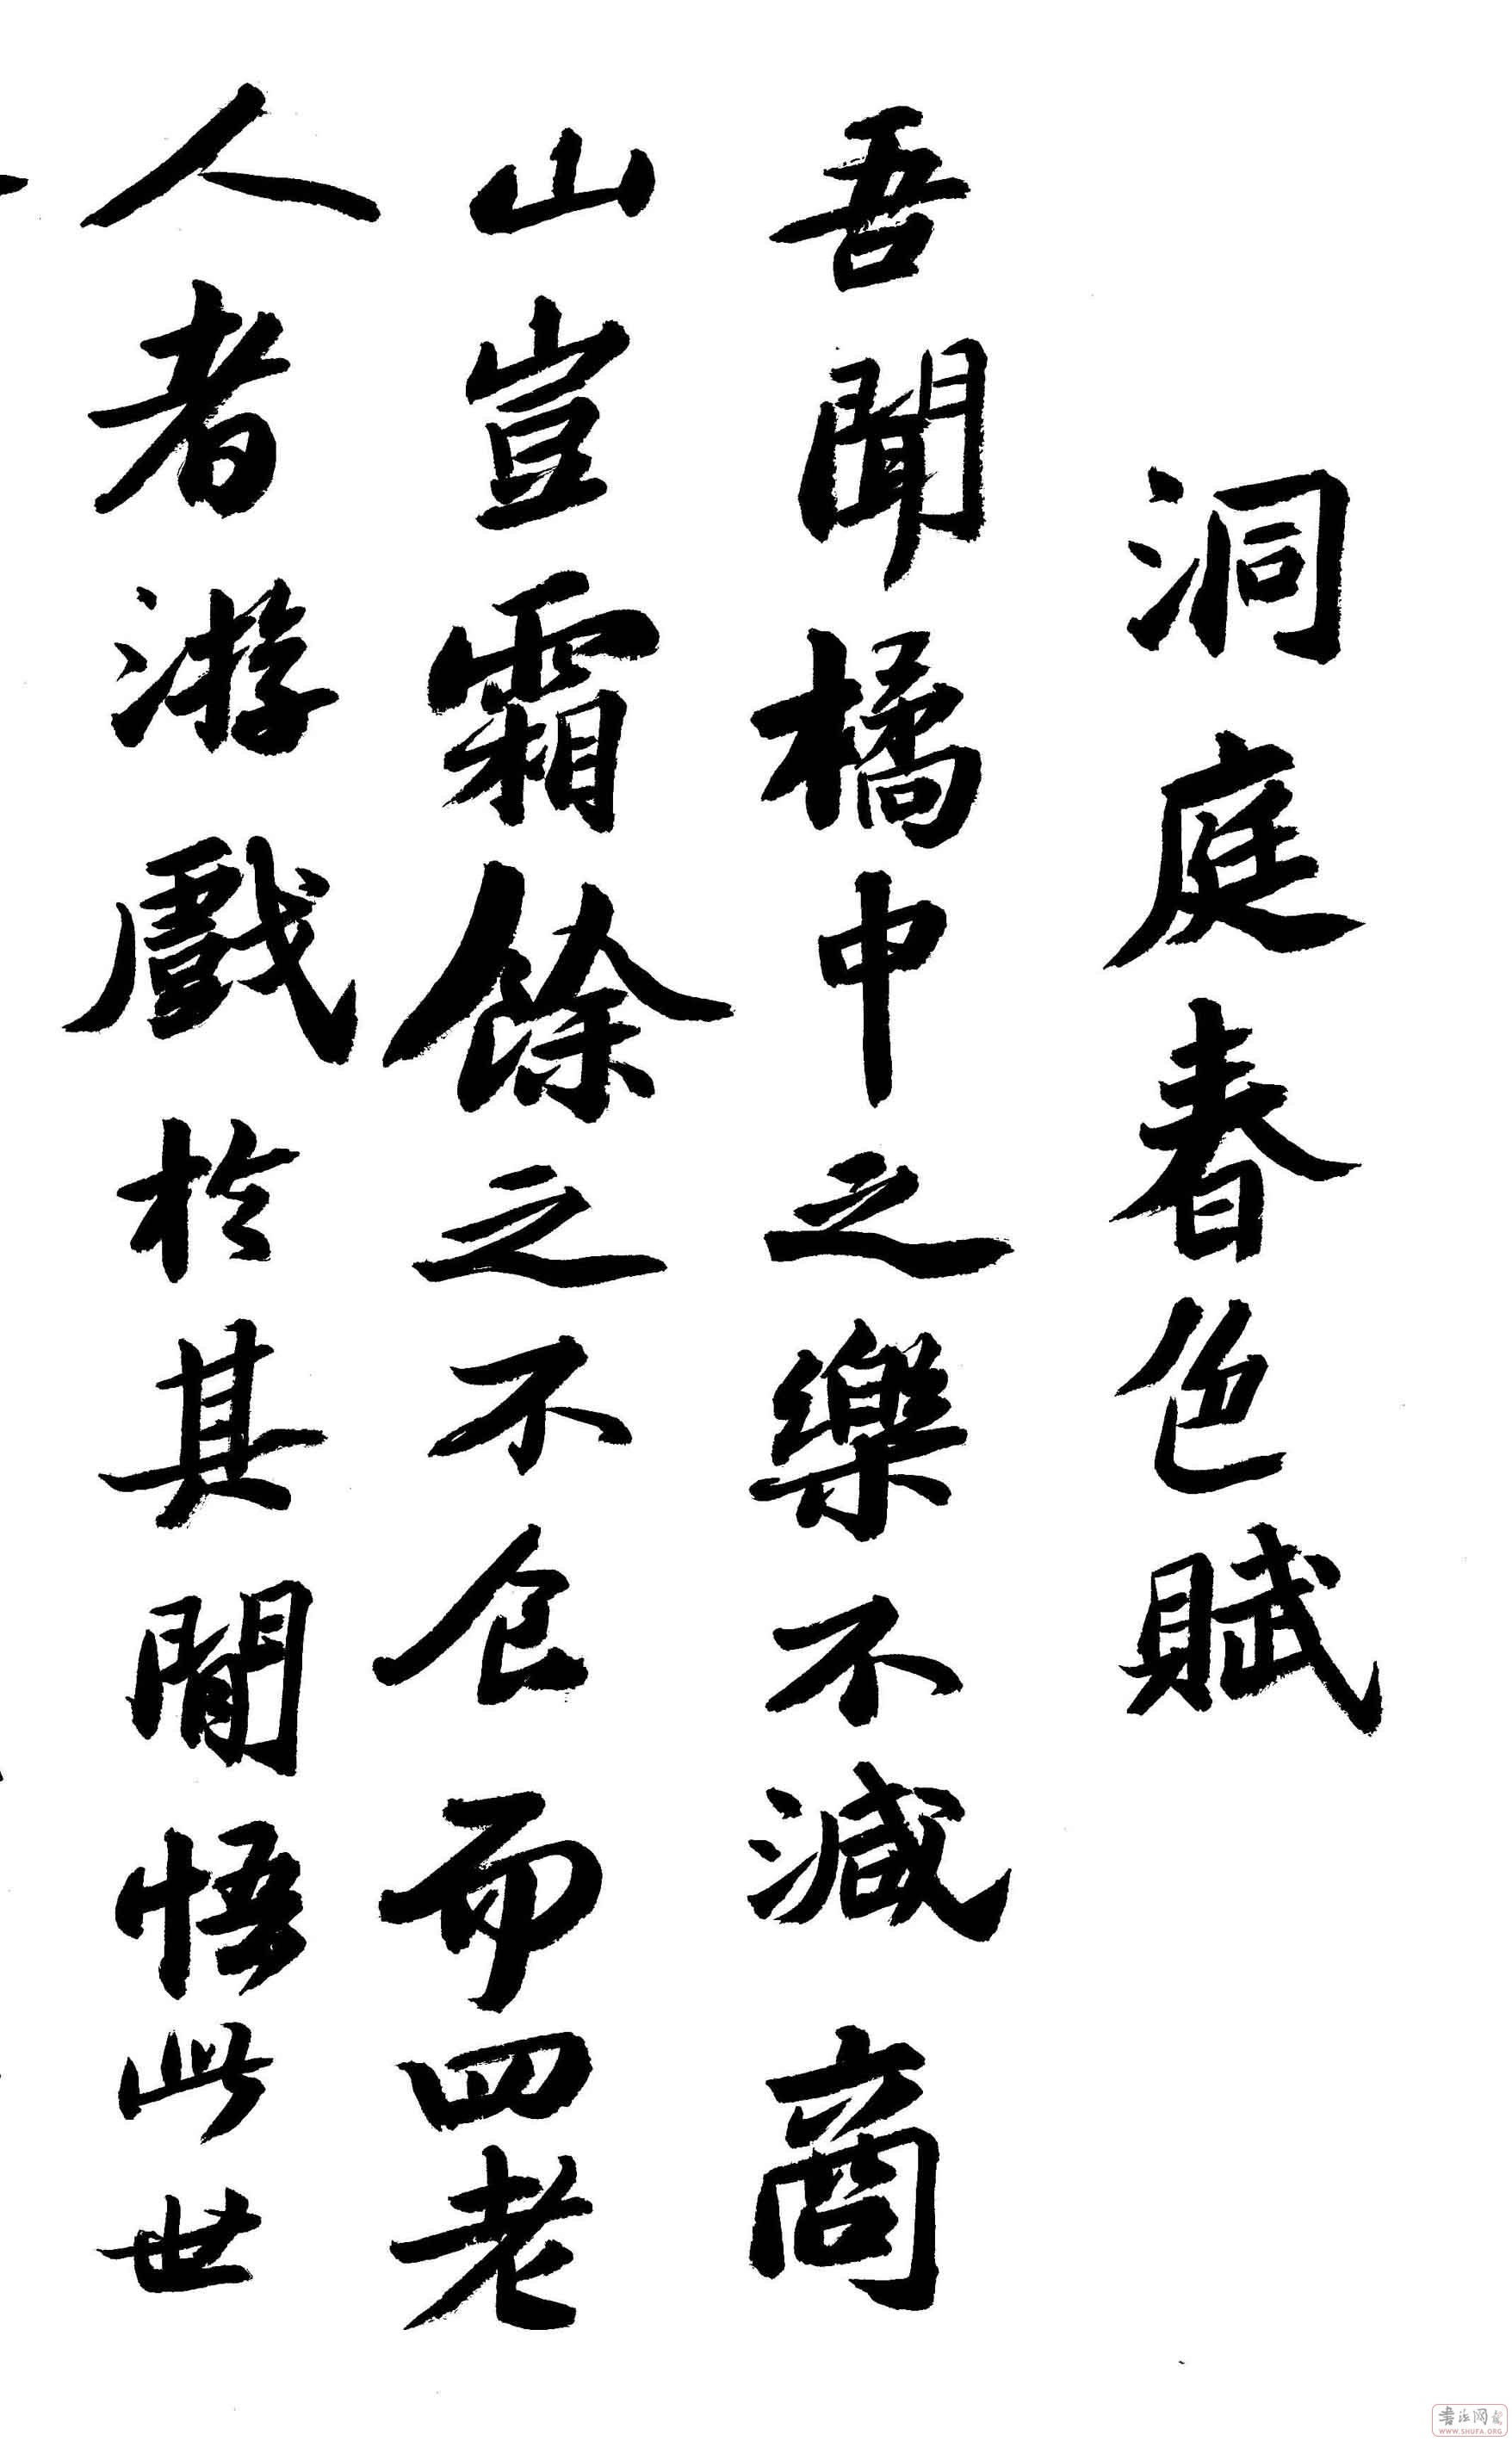 洞庭春色賦
吾聞橘中之樂不減商
山豈霜餘之不食而四老
人者游戲於其間悟此世
书法网
WWW.SHUFA.ORG